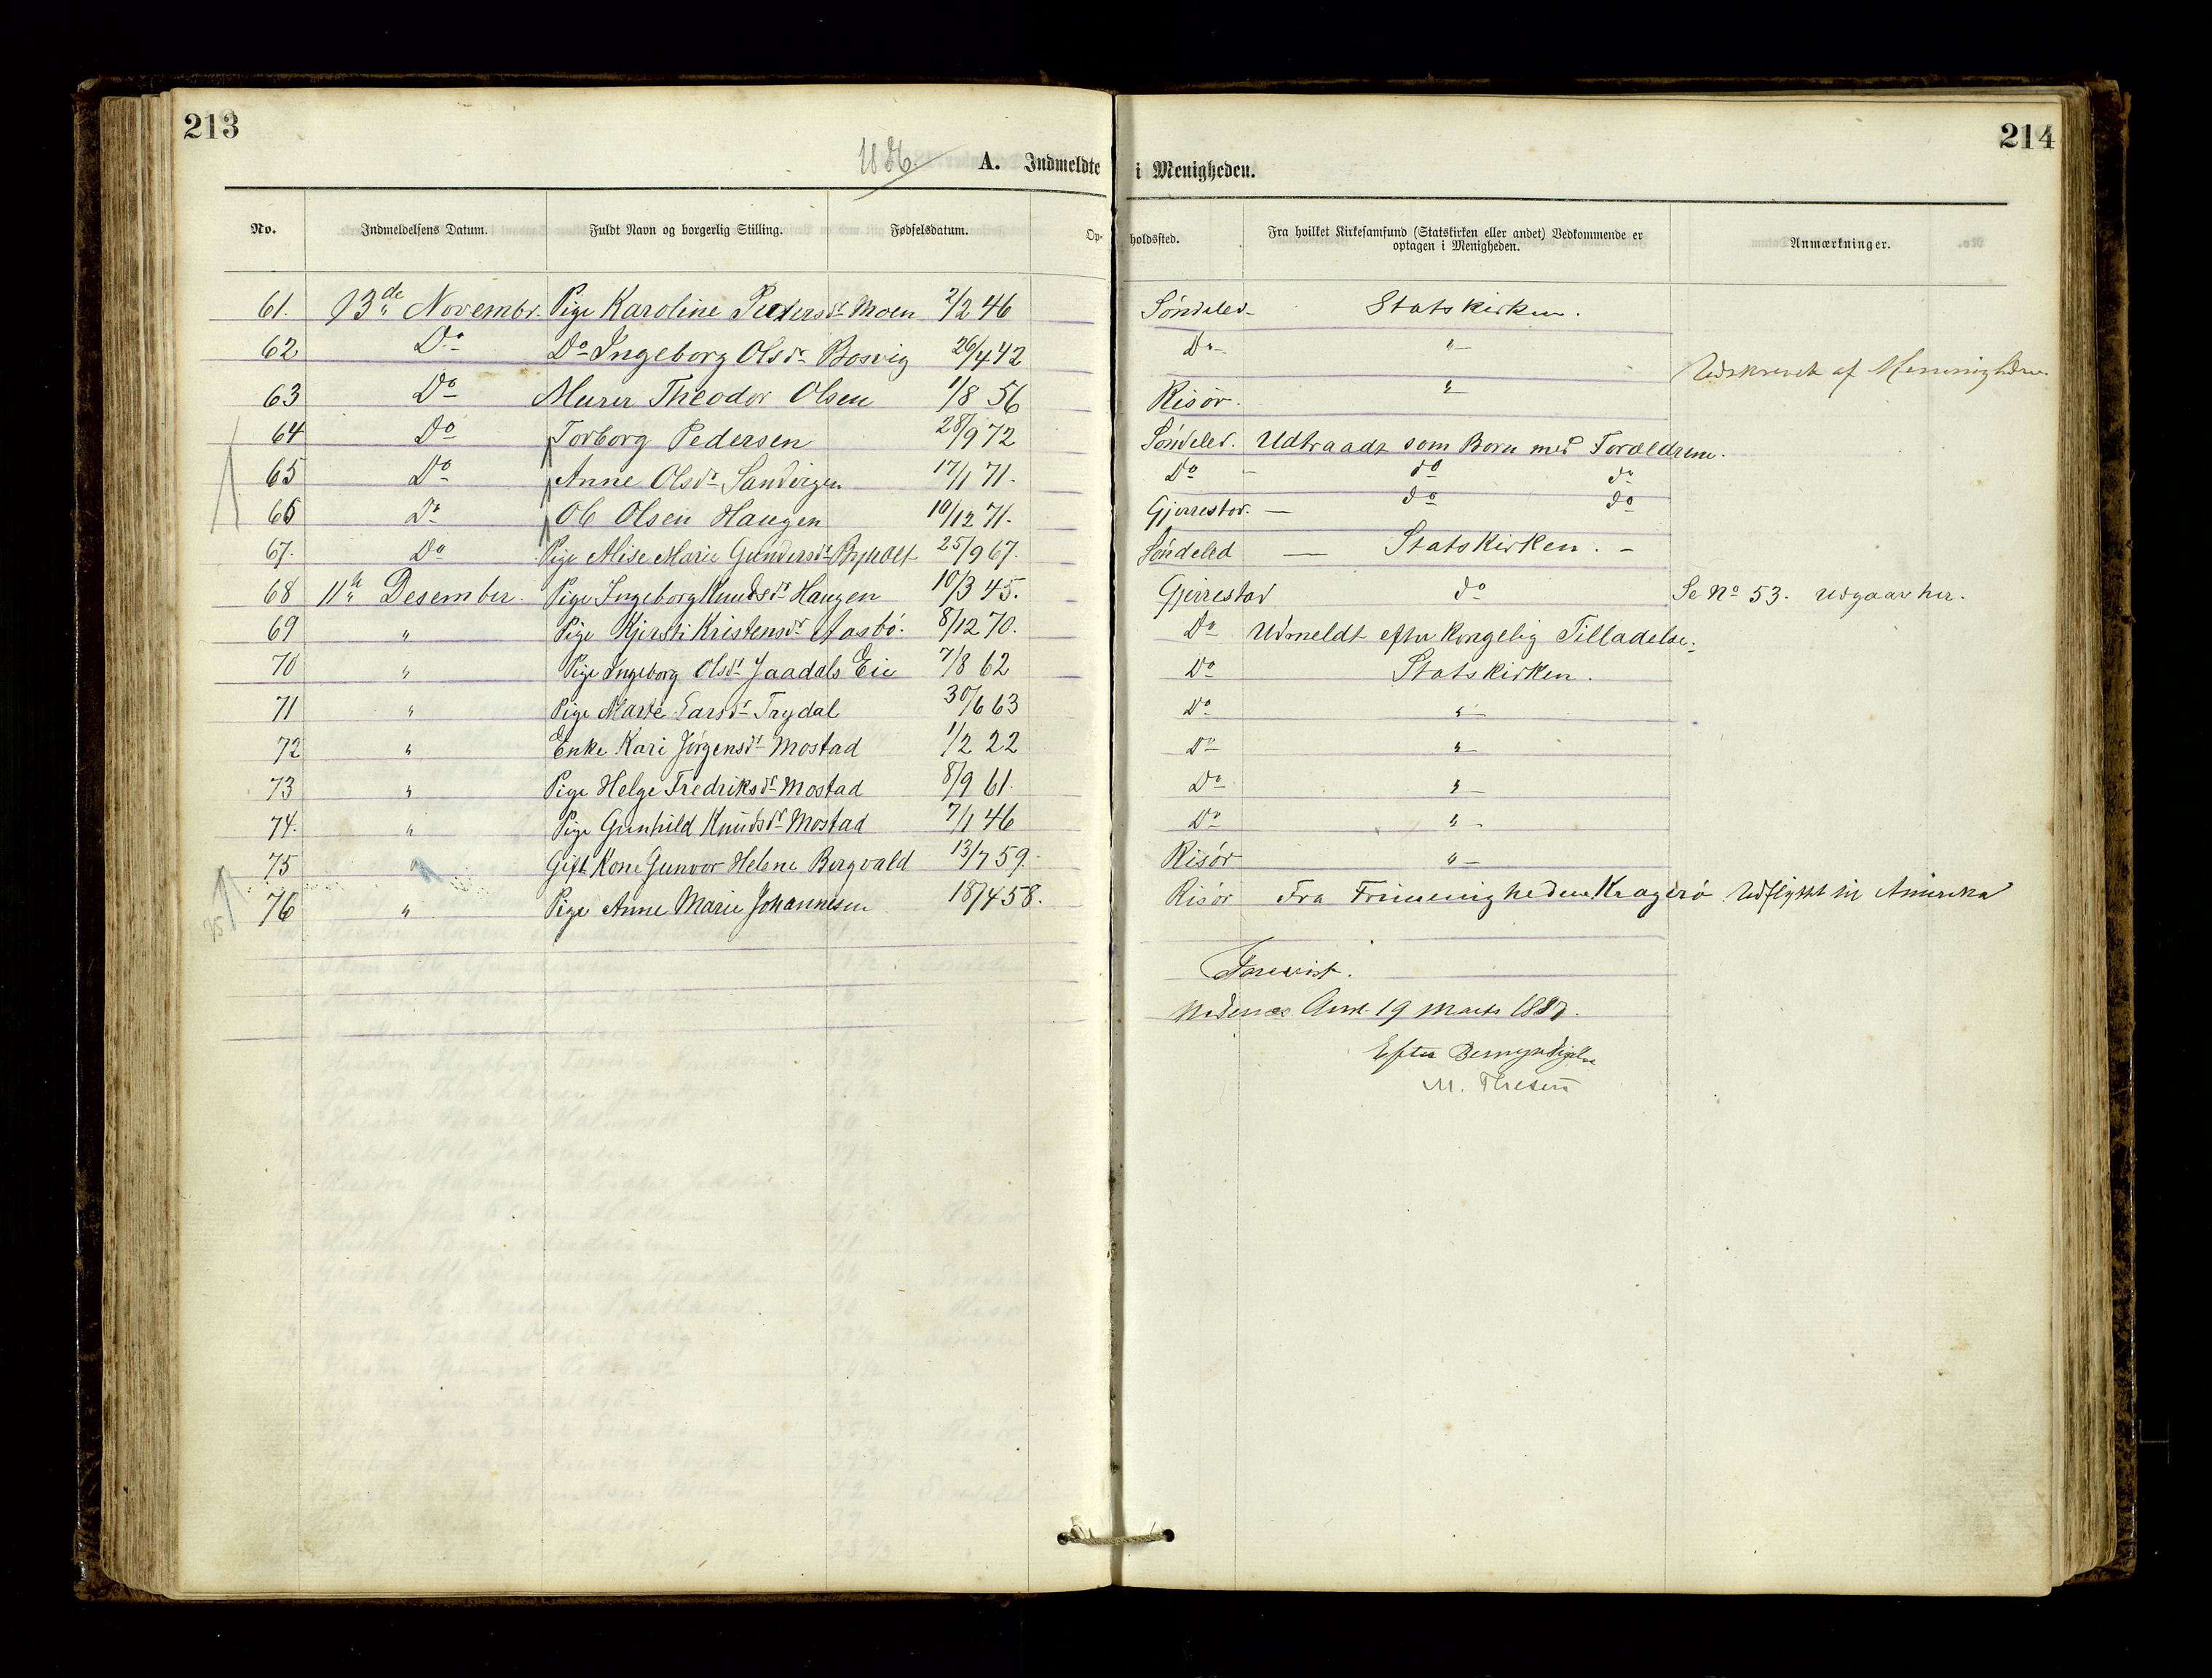 213
214
1886.
A. Indmeldte i Menigheden.
No. Indmeldelsens Datum. Fuldt Navn og borgerlig Stilling. Fødselsdatum. Opholdssted. Fra hvilket Kirkesamfund (Statskirken eller andet) Vedkommende er optagen i Menigheden. Anmærkninger.
61. 13de Novembr. Pige Karoline Pedersdr Moen 2/2 46 Søndeled Statskirken.
62 Do Do Ingeborg Olsdr Bosvig 26/4 42 Do "
63 Do Murer Theodor Olsen 1/8 56 Risør. " Udskrevet af Menigheden
64 Do Torborg Pedersen 28/9 72 Søndeled. Udtraadt som Born med Forældrene.
65 Do Anne Olsdr Sandvigen 17/1 71. Do do do
66 Do Ole Olsen Haugen 10/12 71. Gjerrestad. do do
67. Do Pige Alise Marie Gundersdr 25/9 67. Søndeled Statskirken.
68 11te Desember. Pige Ingeborg Knudsdr Haugen 10/3 45. Gjerrestad do Se No 53. Udgaar her.
69 " Pige Kjersti Kristensdr Aasbø. 8/12 70. Do Udmeldt efter kongelig Tilladelse.
70 " Pige Ingeborg Olsdr Jaadals Eie 7/8 62 Do Statskirken.
71 " Pige Marte Larsdr Trydal 30/6 63 Do "
72 " Enke Kari Jørgensdr Mostad 1/2 22 Do "
73 " Pige Helge Fredriksdr Mostad 8/9 61. Do "
74. " Pige Gunhild Knudsdr Mostad 7/1 46 Do "
75 " Gift Kone Gunvor Helene Bergvald 13/7 59. Risør "
76 " Pige Anne Marie Johannesen 18/4 58. Risør Fra Frimenigheden Kragerø Udflyttet til Amerika
Forevist.
Nedenes Amt 19 Marts 1887.
Efter Bemyndigelse
M. Thesen